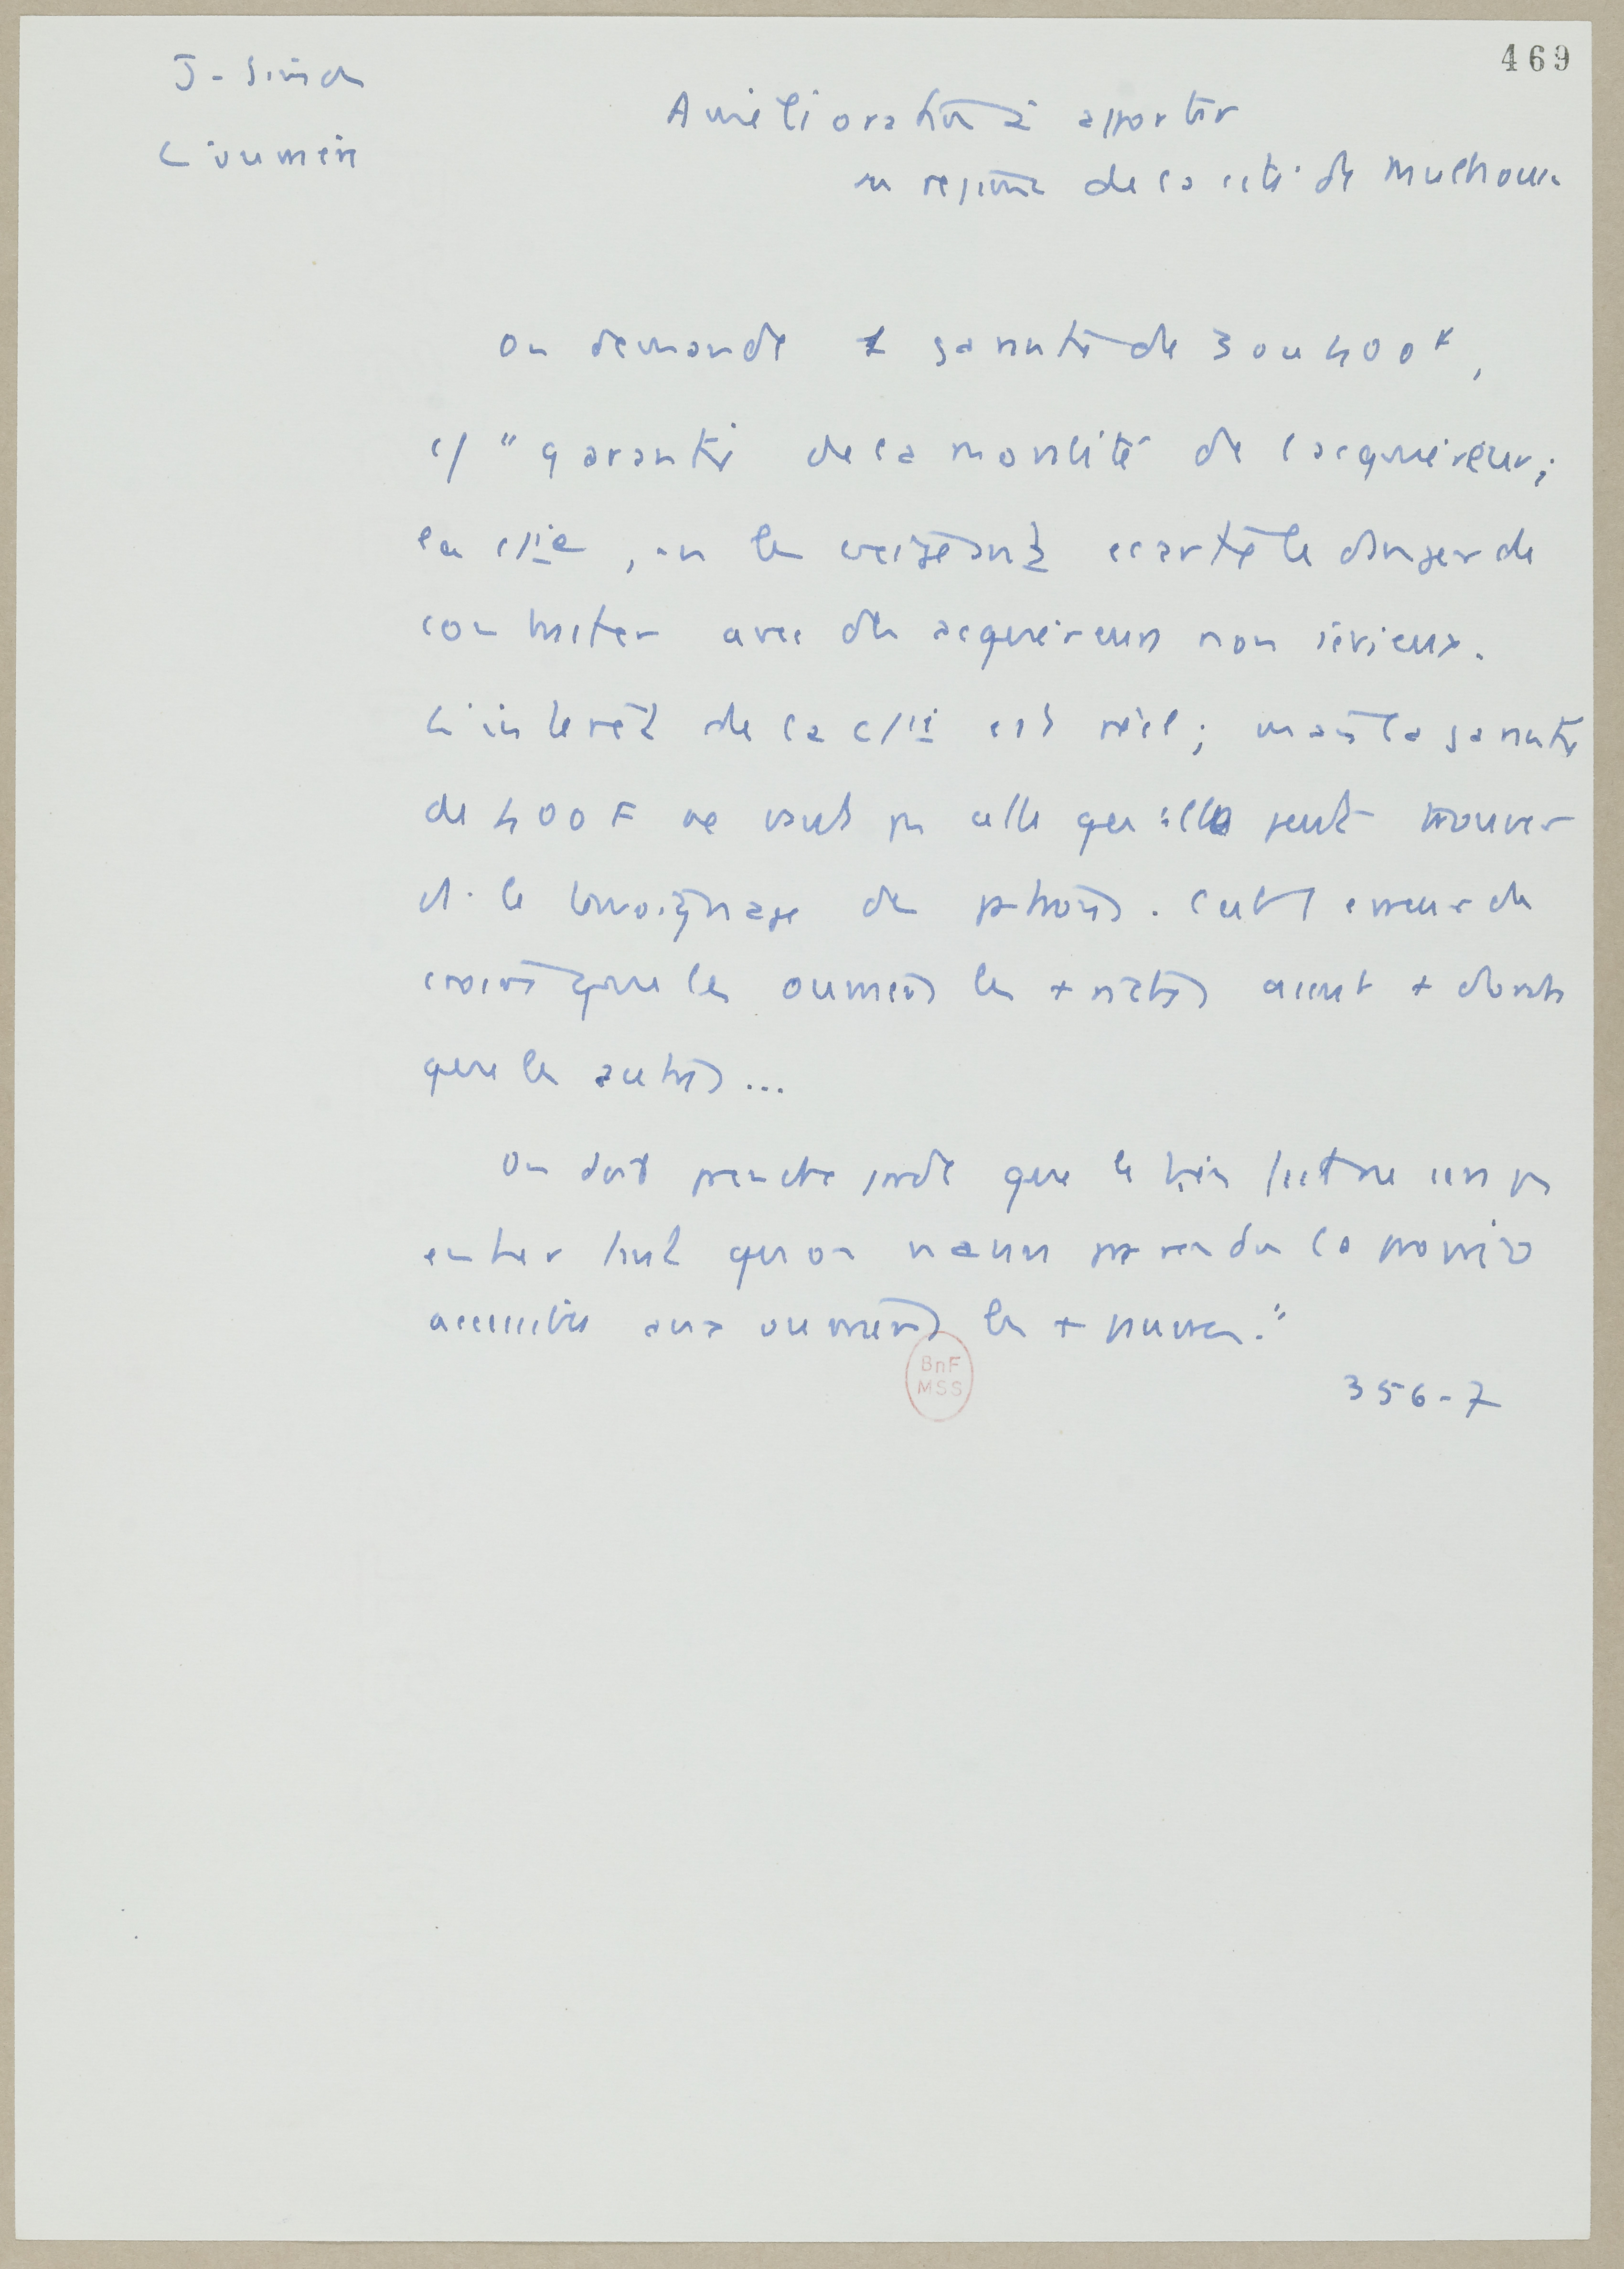 469
J. Simon
L'ouvrière
Améliorations à apporter
au régime de la cité de Mulhouse
On demande 1 garantie de 3 ou 400 F,
c/ "garantie de la moralité de l'acquéreur;
la Cie, en les exigeant écarte le danger de
contracter avec des acquéreurs non sérieux.
L'intérêt de la Cie est réel; mais la garantie
de 400 F ne vaut pas celle qu'elle peut trouver
ds le témoignage des patrons. C'est 1 erreur de
croire que les ouvriers les + riches aient + de droits
que les autres...
On doit prendre garde que le bien
entier tant qu'on n'aura pas rendu la propriété
accessible aux ouvriers les + pauvres."
356-7
BnF
MSS